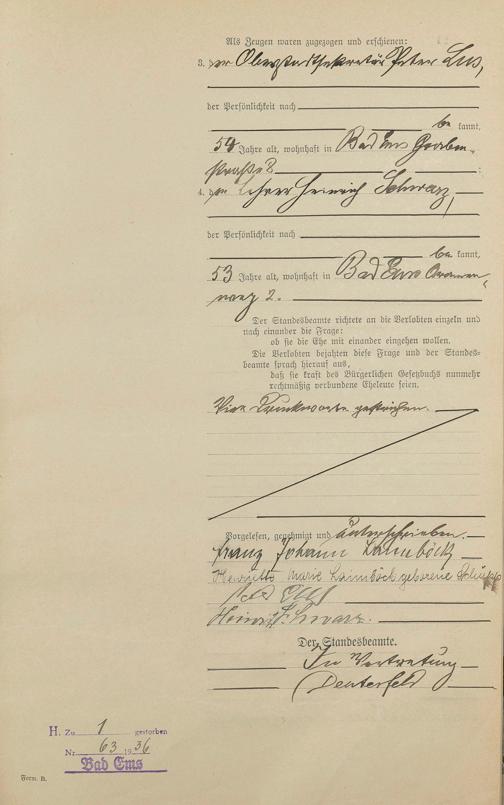 Als Zeugen waren zugezogen und erschienen:
3. der Oberstadtsekretär Peter Lus,
der Persönlichkeit nach
be kannt,
54 Jahre alt, wohnhaft in Bad Ems Graben-
straße 8
4. der Lehrer Heinrich Schwarz,
der Persönlichkeit nach
be kannt,
53 Jahre alt, wohnhaft in Bad Ems
weg 2.
Der Standesbeamte richtete an die Verlobten einzeln und
nach einander die Frage:
ob sie die Ehe mit einander eingehen wollen.
Die Verlobten bejahten diese Frage und der Standes-
beamte sprach hierauf aus,
daß sie kraft des Bürgerlichen Gesetzbuchs nunmehr
rechtmäßig verbundene Eheleute seien.
Vier Druckworte gestrichen.
Vorgelesen, genehmigt und unterschrieben.
Franz Johann Laimböck
Henriette Marie Laimböck geborene
Heinrich Schwarz.
Der Standesbeamte.
In Vertretung
Deuterfeld
H. Zu 1 gestorben
Nr. 63 1936
Bad Ems
Form. B.